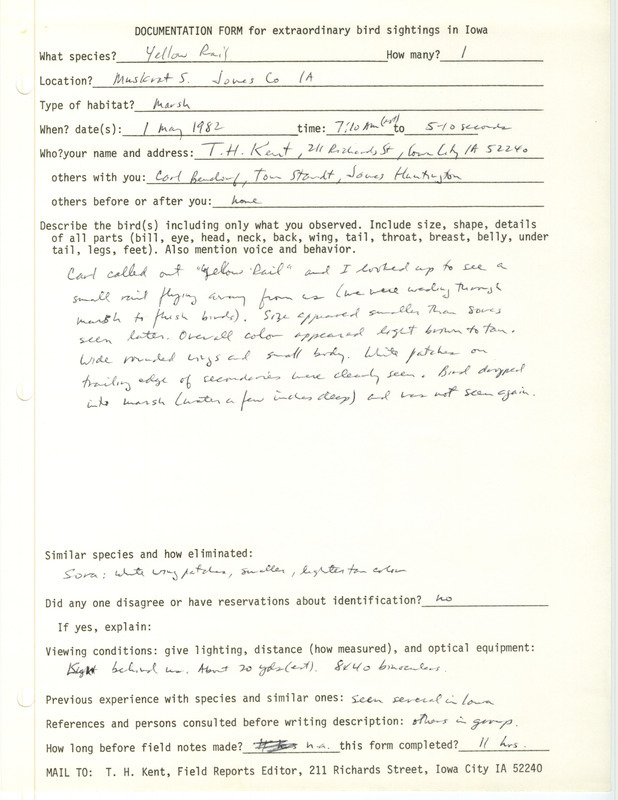 DOCUMENTATION FORM for extraordinary bird sightings in Iowa
What species? Yellow Rail How many? 1
Location? Muskrat S. Jones Co IA
Type of habitat? Marsh
When? date(s): 1 May 1982 time: 7:10 AM (est) to 5-10 seconds
Who?your name and address: T.H. Kent, 211 Richards St, Iowa City IA 52240
others with you: Carl Bendorf, Tom Staudt, James Huntington
others before or after you: none
Describe the bird(s) including only what you observed. Include size, shape, details
of all parts (bill, eye, head, neck, back, wing, tail, throat, breast, belly, under
tail, legs, feet). Also mention voice and behavior.
Carl called out "Yellow Rail" and I looked up to see a
small rail flying away from us (we were wading through
marsh to flush birds). Size appeared smaller than Soras
seen later. Overall color appeared light brown to tan.
Wide rounded wings and small body. White patches on
trailing edge of secondaries were clearly seen. Bird dropped
into marsh (water a few inches deep) and was not seen again.
Similar species and how eliminated:
Sora: white wing patches, smaller, lighter tan color
Did any one disagree or have reservations about identification? no
If yes, explain:
Viewing conditions: give lighting, distance (how measured), and optical equipment:
Light behind us. About 20 yds (est). 8x40 binoculars.
Previous experience with species and similar ones: seen several in Iowa
References and persons consulted before writing description: others in group.
How long before field notes made? n.a. this form completed? 11 hrs.
MAIL TO: T. H. Kent, Field Reports Editor, 211 Richards Street, Iowa City IA 52240